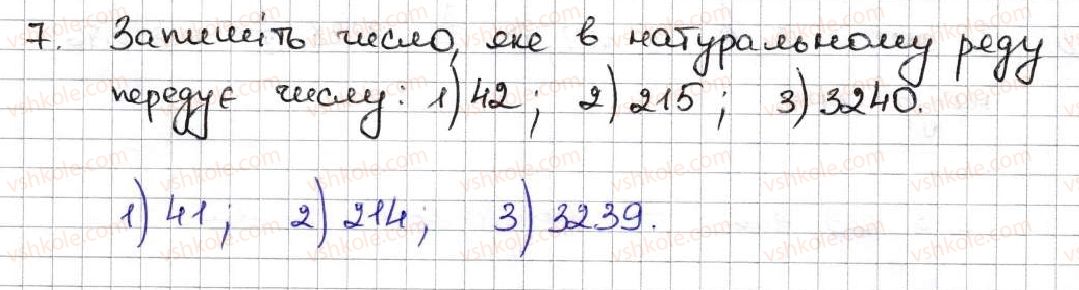 7. Запишіть число, яке в натуральному ряду
передує числу: 1) 42; 2) 215; 3) 3240.
1) 41; 2) 214; 3) 3239.